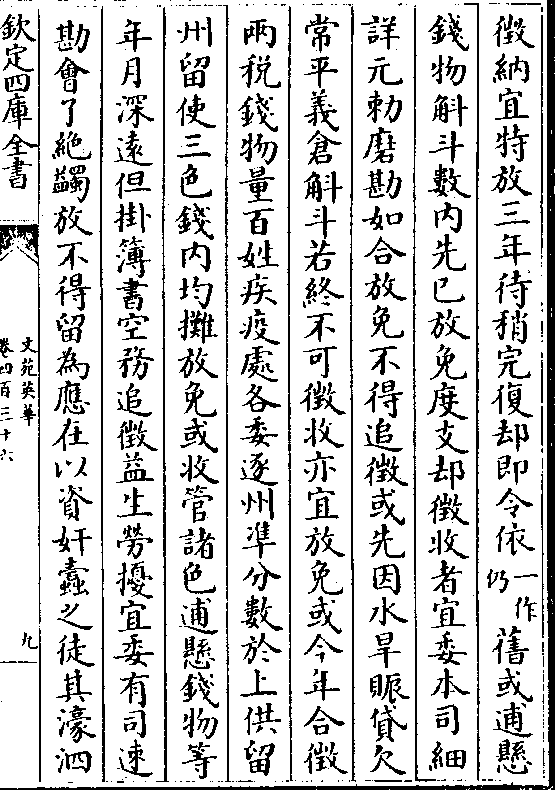 徴納宜特放三年待稍完復却即令依一作仍舊或逋懸
錢物斛斗數内先已放免度支却徴收者宜委本司細
詳元勅磨勘如合放免不得追徴或先因水旱賑貸欠
常平義倉斛斗若終不可徴收亦宜放免或今年合徴
兩税錢物量百姓疾疫處各委逐州準分數於上供留
州留使三色錢内均攤放免或收管諸色逋懸錢物等
年月深遠但掛簿書空務追徴益生勞擾宜委有司速
勘會了絶蠲放不得留為應在以資奸蠧之徒其濠泗
欽定四庫全書
文苑英華
卷四百三十六
九